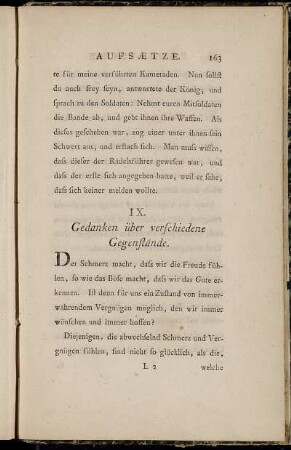 AUFSÆTZE. 163
te für meine verführten Kameraden. Nun sollst
du auch frey seyn, antwortete der König; und
sprach zu den Soldaten: Nehmt euren Mitsoldaten
die Bande ab, und gebt ihnen ihre Waffen. Als
dieses geschehen war, zog einer unter ihnen sein
Schwert aus, und erstach sich. Man muss wissen,
dass dieser der Rädelsführer gewesen war, und
dass der erste sich angegeben hatte, weil er sehe,
dass sich keiner melden wollte.
IX.
Gedanken über verschiedene
Gegenstände.
Der Schmerz macht, dass wir die Freude füh-
len, so wie das Böse macht, dass wir das Gute er-
kennen. Ist denn für uns ein Zustand von immer-
währendem Vergnügen möglich, den wir immer
wünschen und immer hoffen?
Diejenigen, die abwechselnd Schmerz und Ver-
gnügen fühlen, sind nicht so glücklich, als die,
L 2 welche